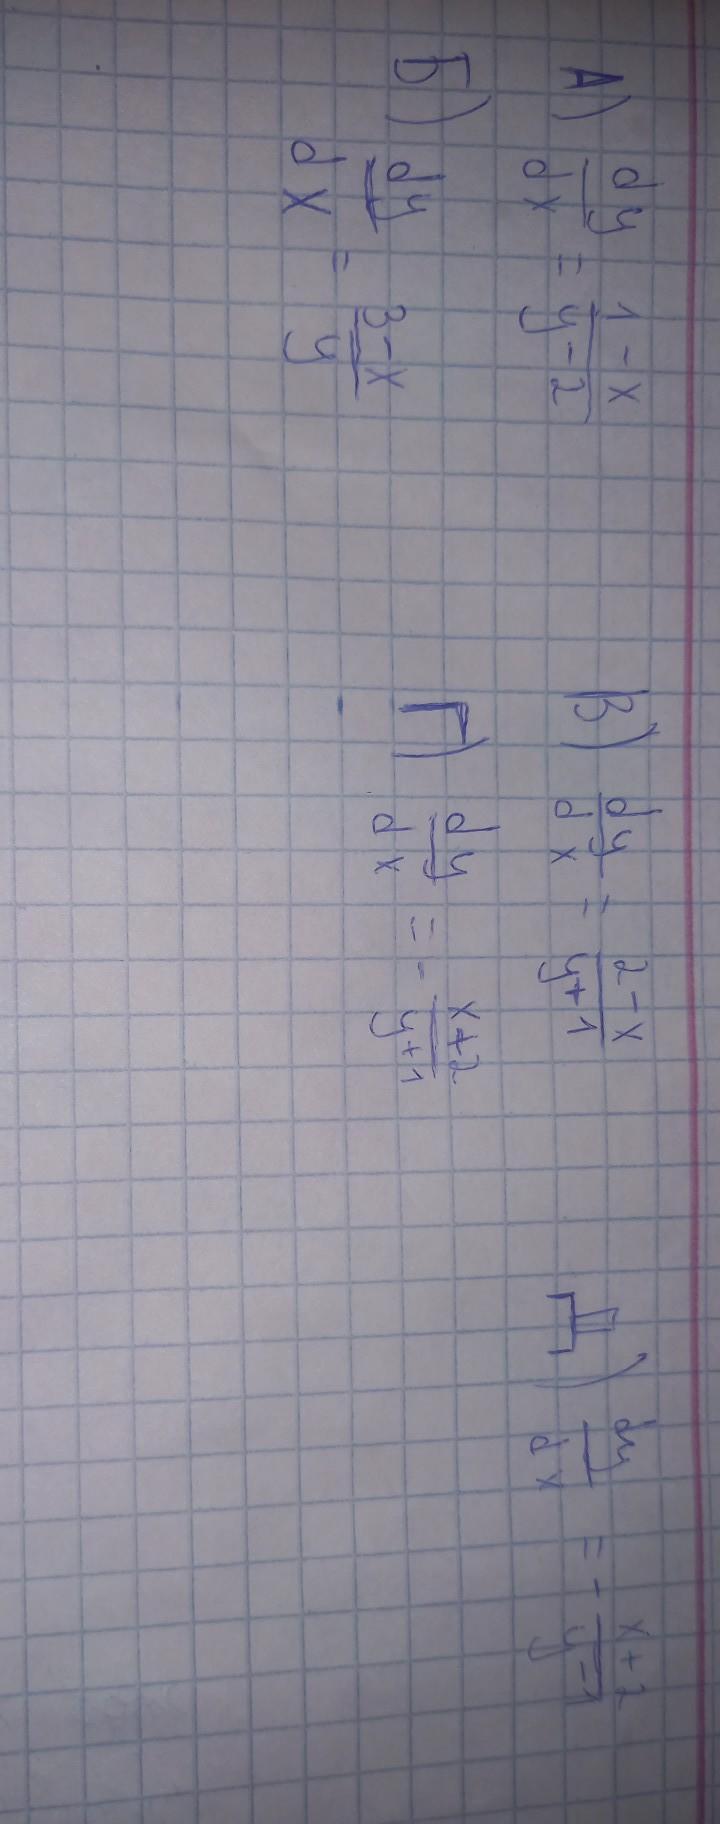 А) dy/dx = 1-x/y-2
Б) dy/dx = 3-x/y
В) dy/dx = 2-x/y+1
Г) dy/dx = - x+2/y+1
Д) dy/dx = - x+2/y-1